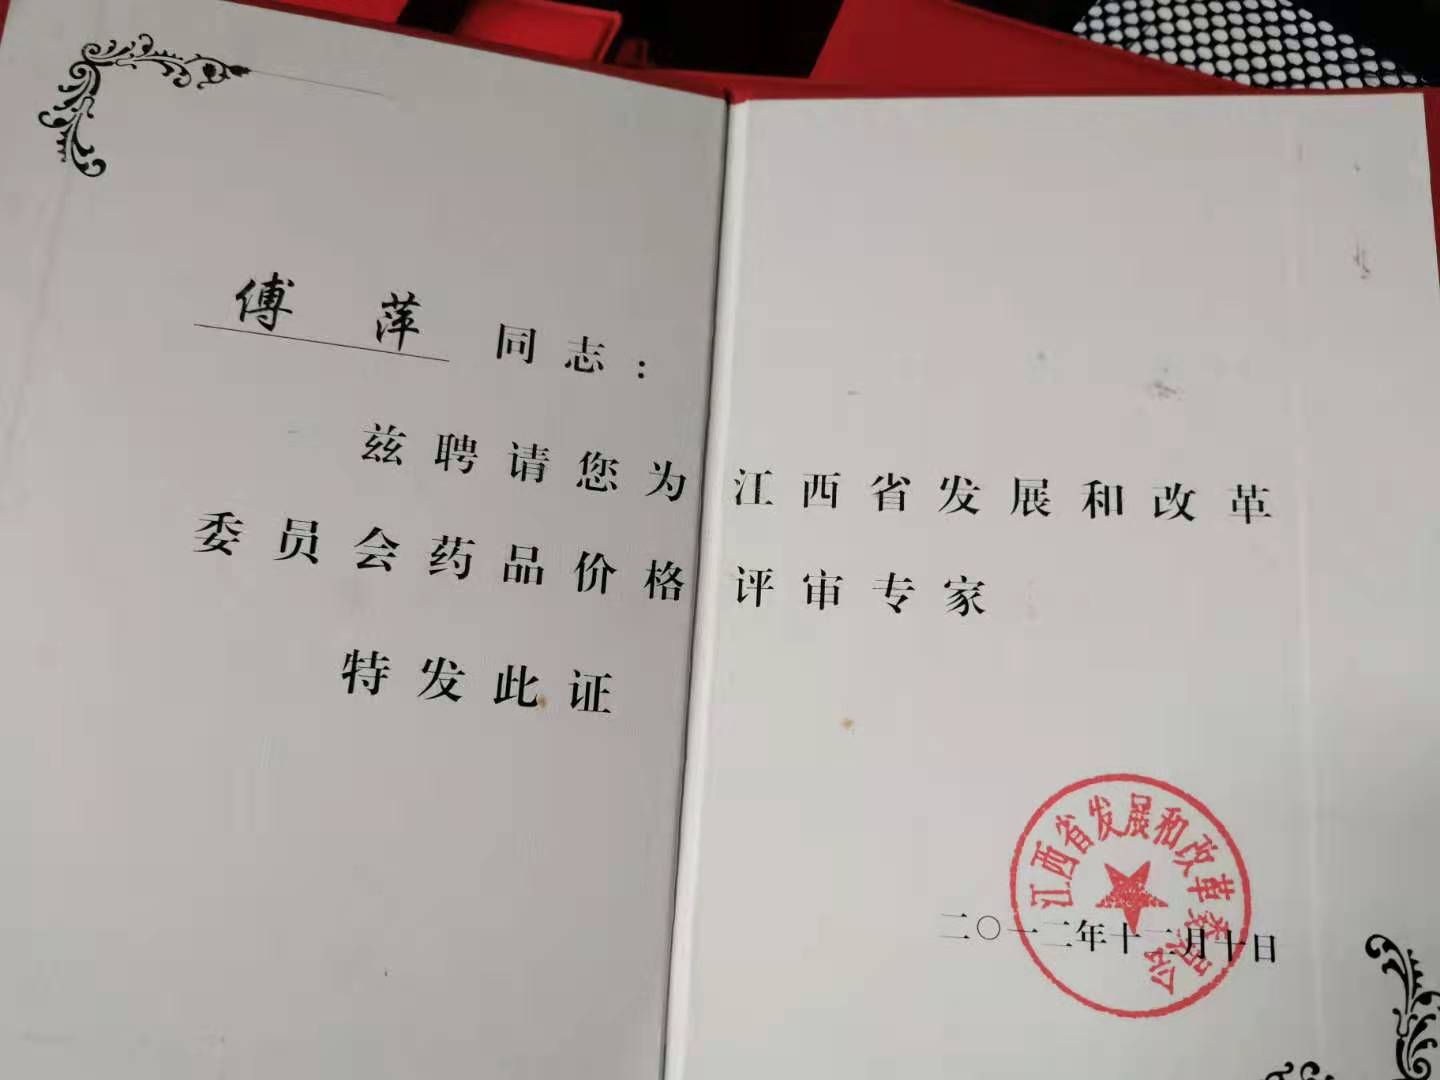 傅萍同志：
兹聘请您为江西省发展和改革
委员会药品价格评审专家
特发此证
江西省发展和改革委员会
二〇一二年十二月十日